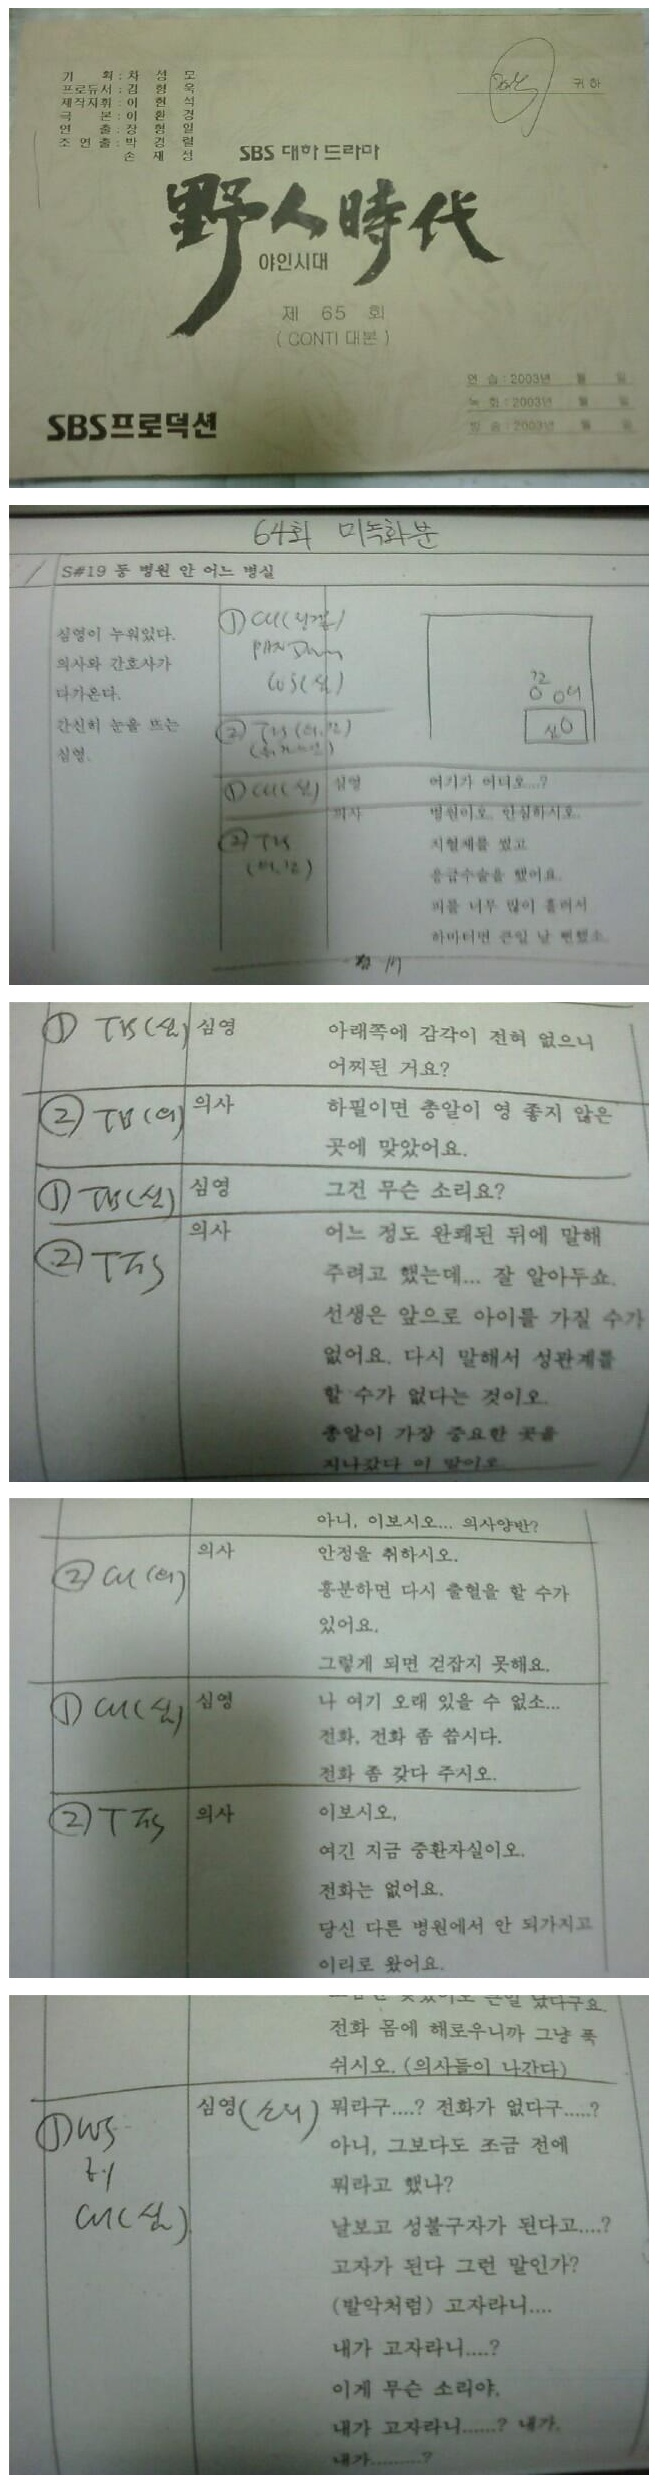 기 획 : 차 성 모
프로듀서 : 김 형 욱
제작지휘 : 이 현 석
극 본 : 이 환 경
연 출 : 장 형 일
조 연 출 : 박 경 렬
손 재 성
귀하
SBS 대하 드라마
野人時代
야인시대
제 65 회
( CONTI 대본 )
연 습 : 2003년 월 일
녹 화 : 2003년 월 일
방 송 : 2003년 월 일
SBS프로덕션
64회 미녹화분
S#19 동 병원 안 어느 병실
심영이 누워있다.
의사와 간호사가
다가온다.
간신히 눈을 뜨는
심영.
① CU(링겔)
PAN Down
WS(심)
② TS(의,간)
심
① CU(심) 심영 여기가 어디오...?
의사 병원이오. 안심하시오.
② TS 지혈제를 썼고
(의,간) 응급수술을 했어요.
피를 너무 많이 흘려서
하마터면 큰일 날 뻔했소.
① TBS(심) 심영 아래쪽에 감각이 전혀 없으니
어찌된 거요?
② TB(의) 의사 하필이면 총알이 영 좋지 않은
곳에 맞았어요.
① TBS(심) 심영 그건 무슨 소리요?
② TFS 의사 어느 정도 완쾌된 뒤에 말해
주려고 했는데... 잘 알아두쇼.
선생은 앞으로 아이를 가질 수가
없어요. 다시 말해서 성관계를
할 수가 없다는 것이오.
총알이 가장 중요한 곳을
지나갔다 이 말이오.
아니, 이보시오... 의사양반?
② CU(의) 의사 안정을 취하시오.
흥분하면 다시 출혈을 할 수가
있어요.
그렇게 되면 걷잡지 못해요.
① CU(심) 심영 나 여기 오래 있을 수 없소...
전화, 전화 좀 씁시다.
전화 좀 갖다 주시오.
② TFS 의사 이보시오,
여긴 지금 중환자실이오.
전화는 없어요.
당신 다른 병원에서 안 되가지고
이리로 왔어요.
큰일 났다구요.
전화 몸에 해로우니까 그냥 푹
쉬시오. (의사들이 나간다)
① WS 심영(소리) 뭐라구....? 전화가 없다구.....?
아니, 그보다도 조금 전에
CU(심) 뭐라고 했나?
날보고 성불구자가 된다고....?
고자가 된다 그런 말인가?
(발악처럼) 고자라니....
내가 고자라니....?
이게 무슨 소리야.
내가 고자라니......? 내가.
내가..........?